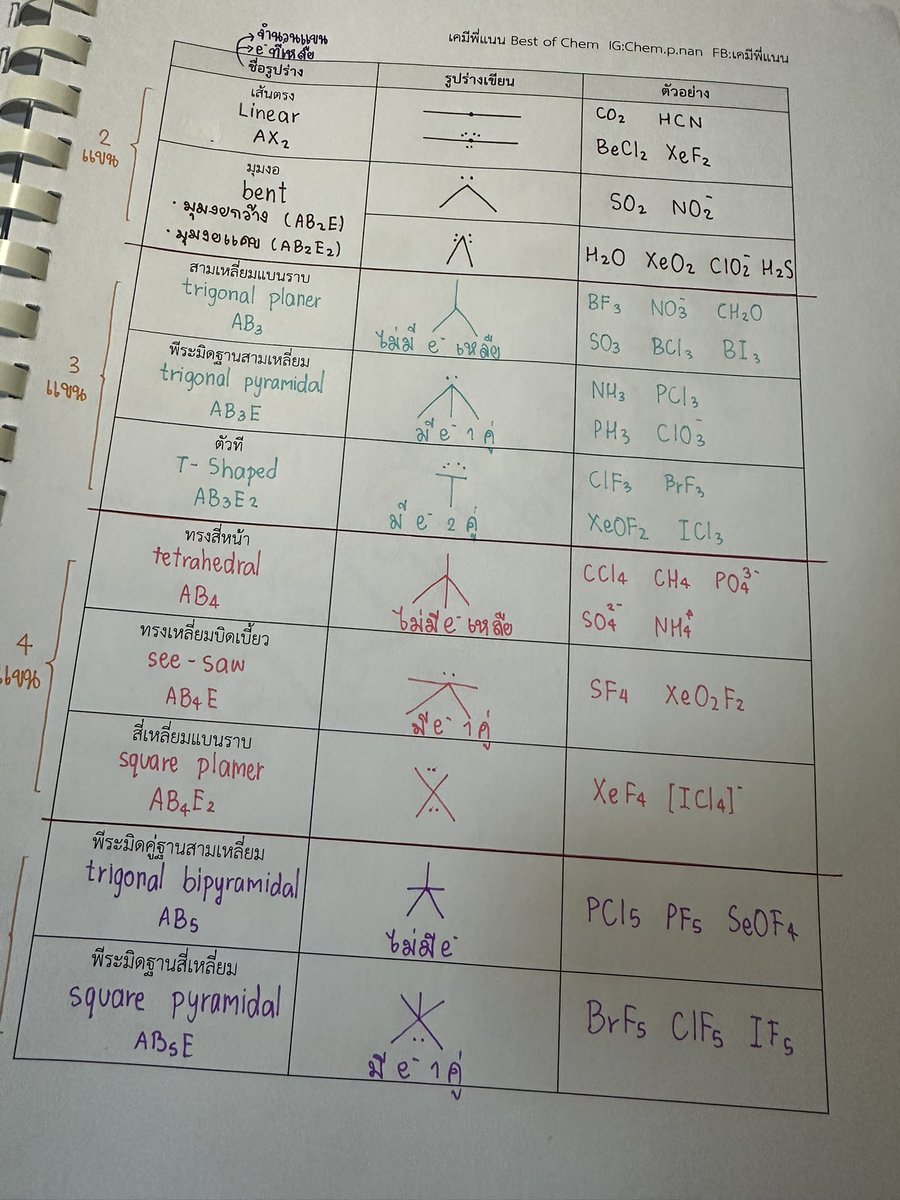 เคมีพี่แนน Best of Chem IG:Chem.p.nan FB:เคมีพี่แนน
จำนวนแขน
e⁻ ที่เหลือ
ชื่อรูปร่าง รูปร่างเขียน ตัวอย่าง
2
แขน
เส้นตรง
Linear
AX₂
CO₂ HCN
BeCl₂ XeF₂
มุมงอ
bent
· มุมงอกว้าง (AB₂E)
· มุมงอแคบ (AB₂E₂)
SO₂ NO₂⁻
H₂O XeO₂ ClO₂⁻ H₂S
3
แขน
สามเหลี่ยมแบนราบ
trigonal planer
AB₃
ไม่มี e⁻ เหลือ
BF₃ NO₃⁻ CH₂O
SO₃ BCl₃ BI₃
พีระมิดฐานสามเหลี่ยม
trigonal pyramidal
AB₃E
มี e⁻ 1 คู่
NH₃ PCl₃
PH₃ ClO₃⁻
ตัวที
T-Shaped
AB₃E₂
มี e⁻ 2 คู่
ClF₃ BrF₃
XeOF₂ ICl₃
4
แขน
ทรงสี่หน้า
tetrahedral
AB₄
ไม่มี e⁻ เหลือ
CCl₄ CH₄ PO₄³⁻
SO₄²⁻ NH₄⁺
ทรงเหลี่ยมบิดเบี้ยว
see-saw
AB₄E
มี e⁻ 1 คู่
SF₄ XeO₂F₂
สี่เหลี่ยมแบนราบ
square plamer
AB₄E₂
XeF₄ [ICl₄]⁻
พีระมิดคู่ฐานสามเหลี่ยม
trigonal bipyramidal
AB₅
ไม่มี e⁻
PCl₅ PF₅ SeOF₄
พีระมิดฐานสี่เหลี่ยม
square pyramidal
AB₅E
มี e⁻ 1 คู่
BrF₅ ClF₅ IF₅